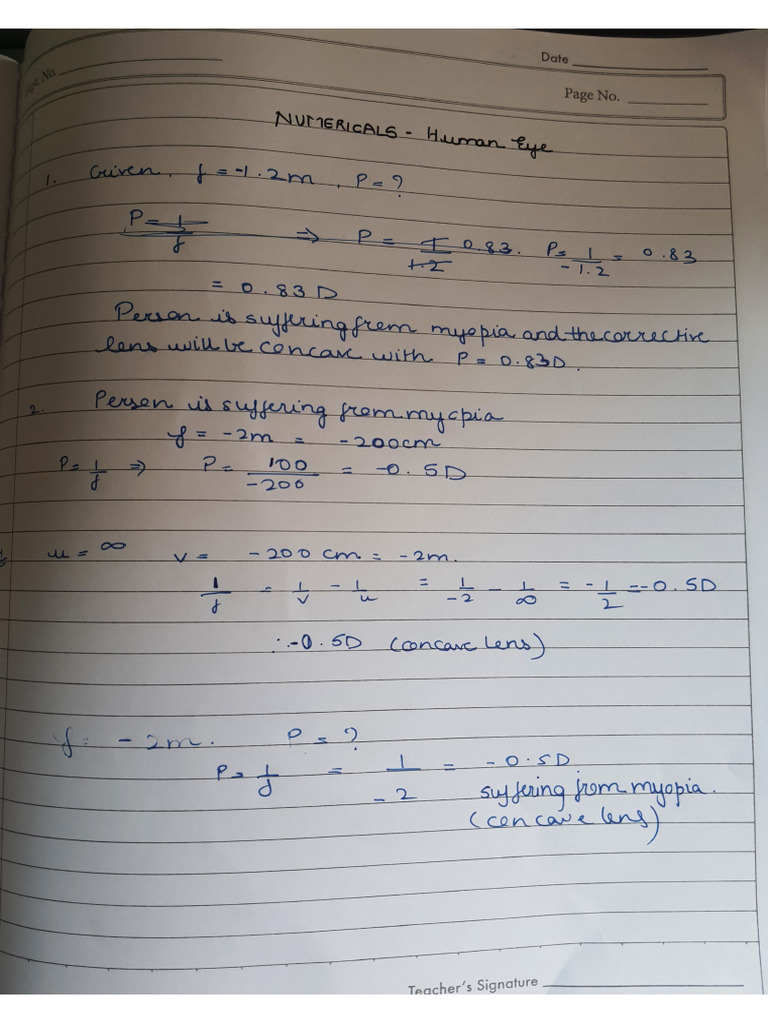 Expt. No.
Date
Page No.
NUMERICALS - Human Eye
1. Given, f = -1.2m, P = ?
P = 1/f ⇒ P = 1/1.2 0.83. P = 1/-1.2 = 0.83
= 0.83 D
Person is suffering from myopia and the corrective
lens will be concave with P = 0.83D.
2. Person is suffering from myopia
f = -2m = -200cm
P = 1/f ⇒ P = 100/-200 = -0.5D
u = ∞ v = -200 cm = -2m.
1/f = 1/v - 1/u = 1/-2 - 1/∞ = -1/2 = -0.5D
∴ -0.5D (concave lens)
f = -2m. P = ?
P = 1/f = 1/-2 = -0.5D
suffering from myopia.
(concave lens)
Teacher's Signature